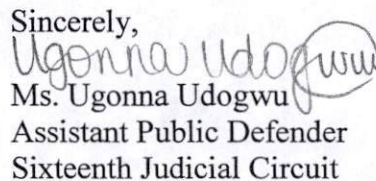 Sincerely,
Ugonna Udogwu
Ms. Ugonna Udogwu
Assistant Public Defender
Sixteenth Judicial Circuit